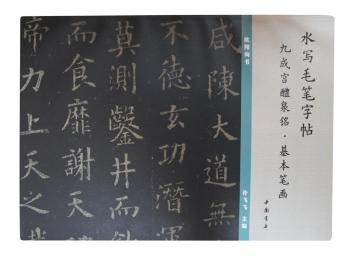 水写毛笔字帖
九成宫醴泉铭·基本笔画
中国书店
欧阳询书
许飞飞 主编
咸陳大道無
不德玄功潛
莫測鑿井而飲
而食靡謝天
帝力上天之